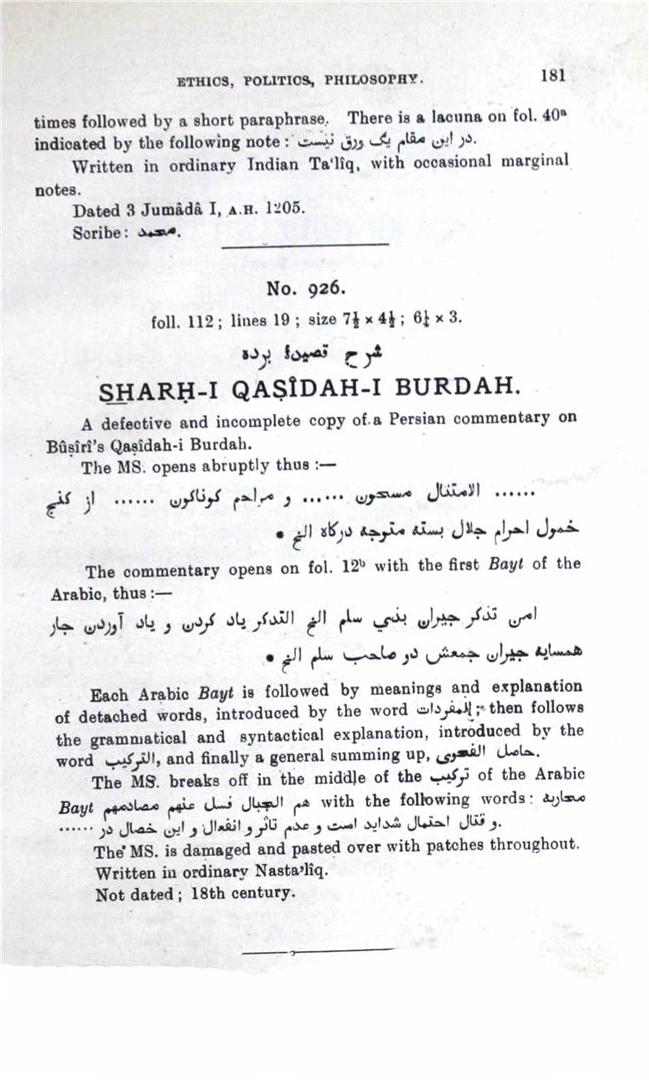 ETHICS, POLITICS, PHILOSOPHY. 181
times followed by a short paraphrase. There is a lacuna on fol. 40ᵃ
indicated by the following note : در این مقام یک ورق نیست.
Written in ordinary Indian Ta'lîq, with occasional marginal
notes.
Dated 3 Jumâdâ I, A.H. 1205.
Scribe: محمد.
No. 926.
foll. 112 ; lines 19 ; size 7½ × 4½ ; 6¼ × 3.
شرح قصیدۀ برده
SHARḤ-I QAṢÎDAH-I BURDAH.
A defective and incomplete copy of a Persian commentary on
Bûṣîrî's Qaṣîdah-i Burdah.
The MS. opens abruptly thus :—
...... الامتنال مسحون ...... و مراحم کوناکون ...... از کنج
خمول احرام جلال بسته متوجه درکاه الخ •
The commentary opens on fol. 12ᵇ with the first Bayt of the
Arabic, thus :—
امن تذکر جیران بذي سلم الخ التذکر یاد کردن و یاد آوردن جار
همسایه جیران جمعش دو صاحب سلم الخ •
Each Arabic Bayt is followed by meanings and explanation
of detached words, introduced by the word المفردات; then follows
the grammatical and syntactical explanation, introduced by the
word التركيب, and finally a general summing up, حاصل الفحوى.
The MS. breaks off in the middle of the ترکیب of the Arabic
Bayt هم الجبال فسل عنهم مصادمهم with the following words : محاربه
و قتال احتمال شداید است و عدم تاثر و انفعال و این خصال در ......
The MS. is damaged and pasted over with patches throughout.
Written in ordinary Nasta'lîq.
Not dated ; 18th century.